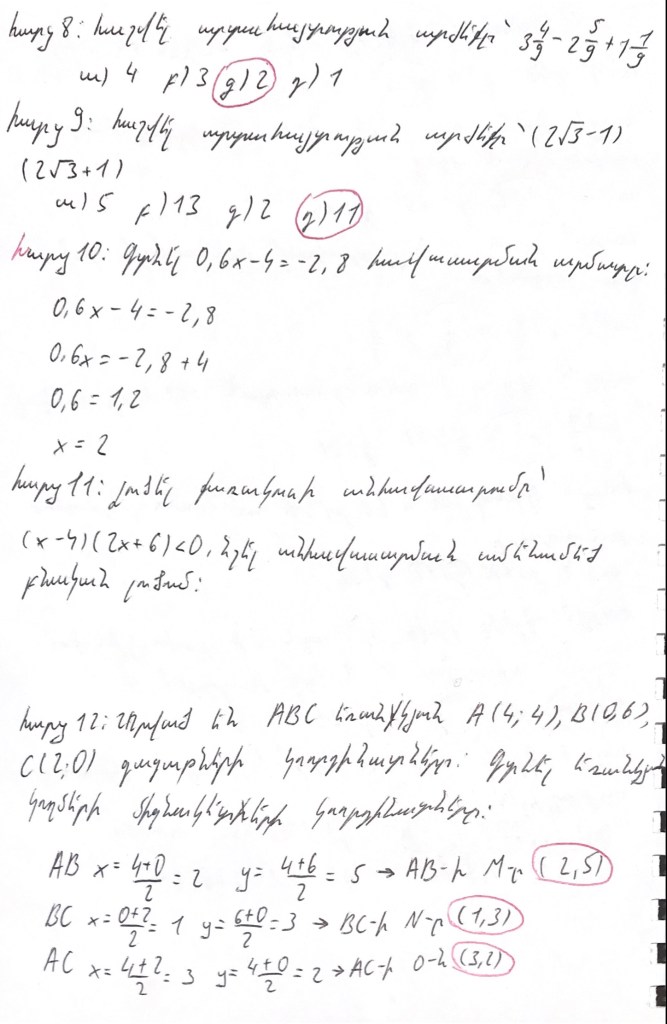 հարց 8: հաշվել արտահայտության արժեքը՝ 3 4/9 - 2 5/9 + 1 1/9
ա) 4 բ) 3 գ) 2 դ) 1
հարց 9: հաշվել արտահայտության արժեքը՝ (2√3-1)
(2√3+1)
ա) 5 բ) 13 գ) 2 դ) 11
հարց 10: Գտնել 0,6x-4=-2,8 հավասարման արմատը:
0,6x-4=-2,8
0,6x=-2,8+4
0,6=1,2
x=2
հարց 11: լուծել քառակուսի անհավասարումը՝
(x-4)(2x+6)<0, նշել անհավասարման ամենամեծ
բնական լուծում:
հարց 12: Տրված են ABC եռանկյան A(4;4), B(0,6),
C(2;0) գագաթների կոորդինատները: Գտնել եռանկյան
կողմերի միջնակետերի կոորդինատները:
AB x=4+0/2=2 y=4+6/2=5 → AB-ի M-ը (2,5)
BC x=0+2/2=1 y=6+0/2=3 → BC-ի N-ը (1,3)
AC x=4+2/2=3 y=4+0/2=2 → AC-ի O-ն (3,2)